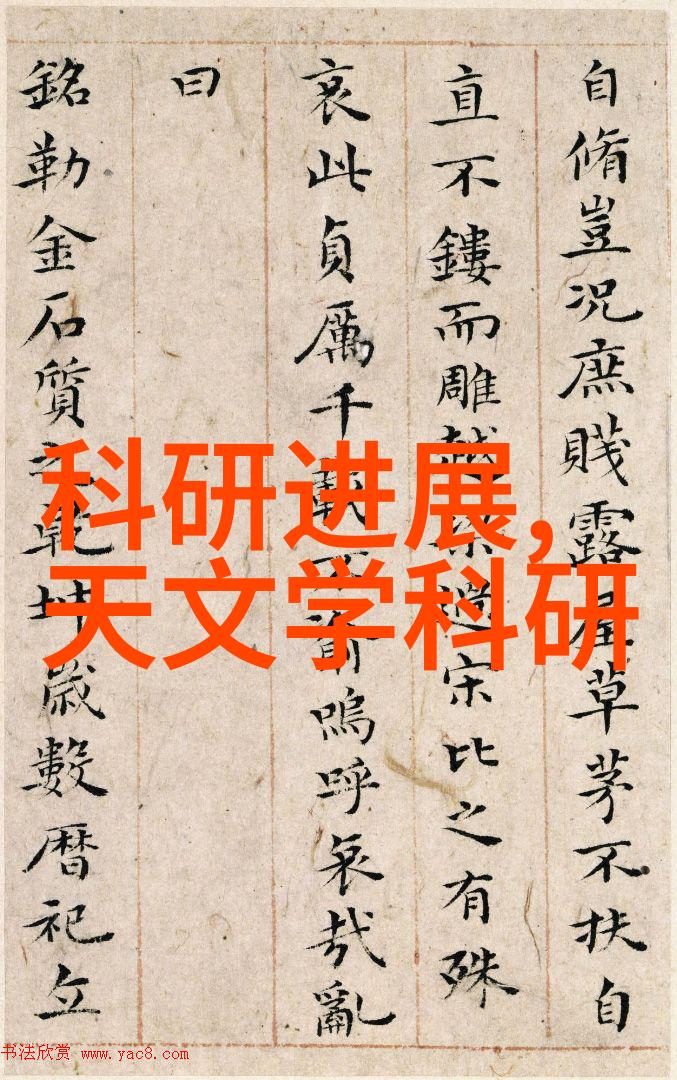 自脩豈况庶賤露屋草茅不扶自
直不鏤而雕越梁過宋比之有殊
哀此貞厲千載不渝嗚呼哀哉亂
曰
銘勒金石質之乾坤歲數曆祀立
科研进展,
天文学科研
书法欣赏 www.yac8.com